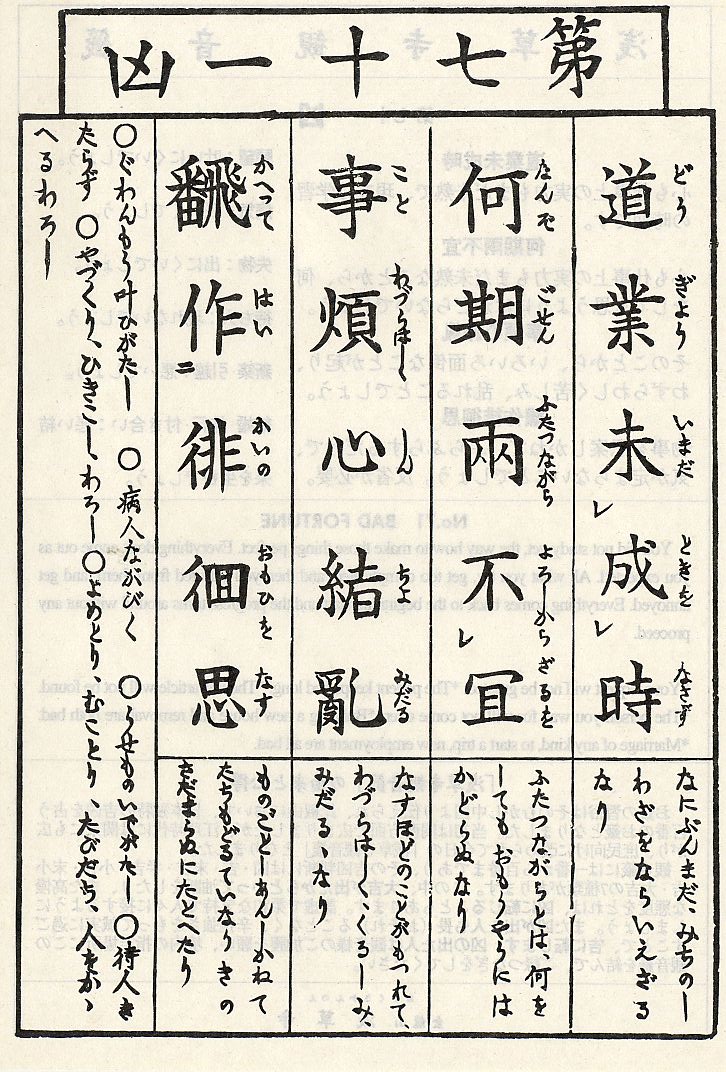 第七十一凶
道業未成時
どうぎよういまだときをなさず
なにぶんまだ、みちのし
わざをならいえざる
な
何期兩不冝
なんぞごせんふたつながらよろしからざるを
ふたつながらとは、何を
してもおもうやうには
かどらぬなり
事煩心緒亂
ことわづらはしくしんちよみだる
なすほどのことがもつれて、
わづらはしく、くるしみ、
みだるるな
飜作二徘徊思
かへつてはいかいのおもひをなす
ものごとあんじかねて
たちもどるていなりきの
さだまらぬにたとへたり
〇ぐわんもう叶ひがたし 〇病人ながびく 〇うせものいでがたし 〇待人き
たらず 〇やづくり、ひきこしわろし〇よめとりむことりたびだち、人をかゝ
へるわろし